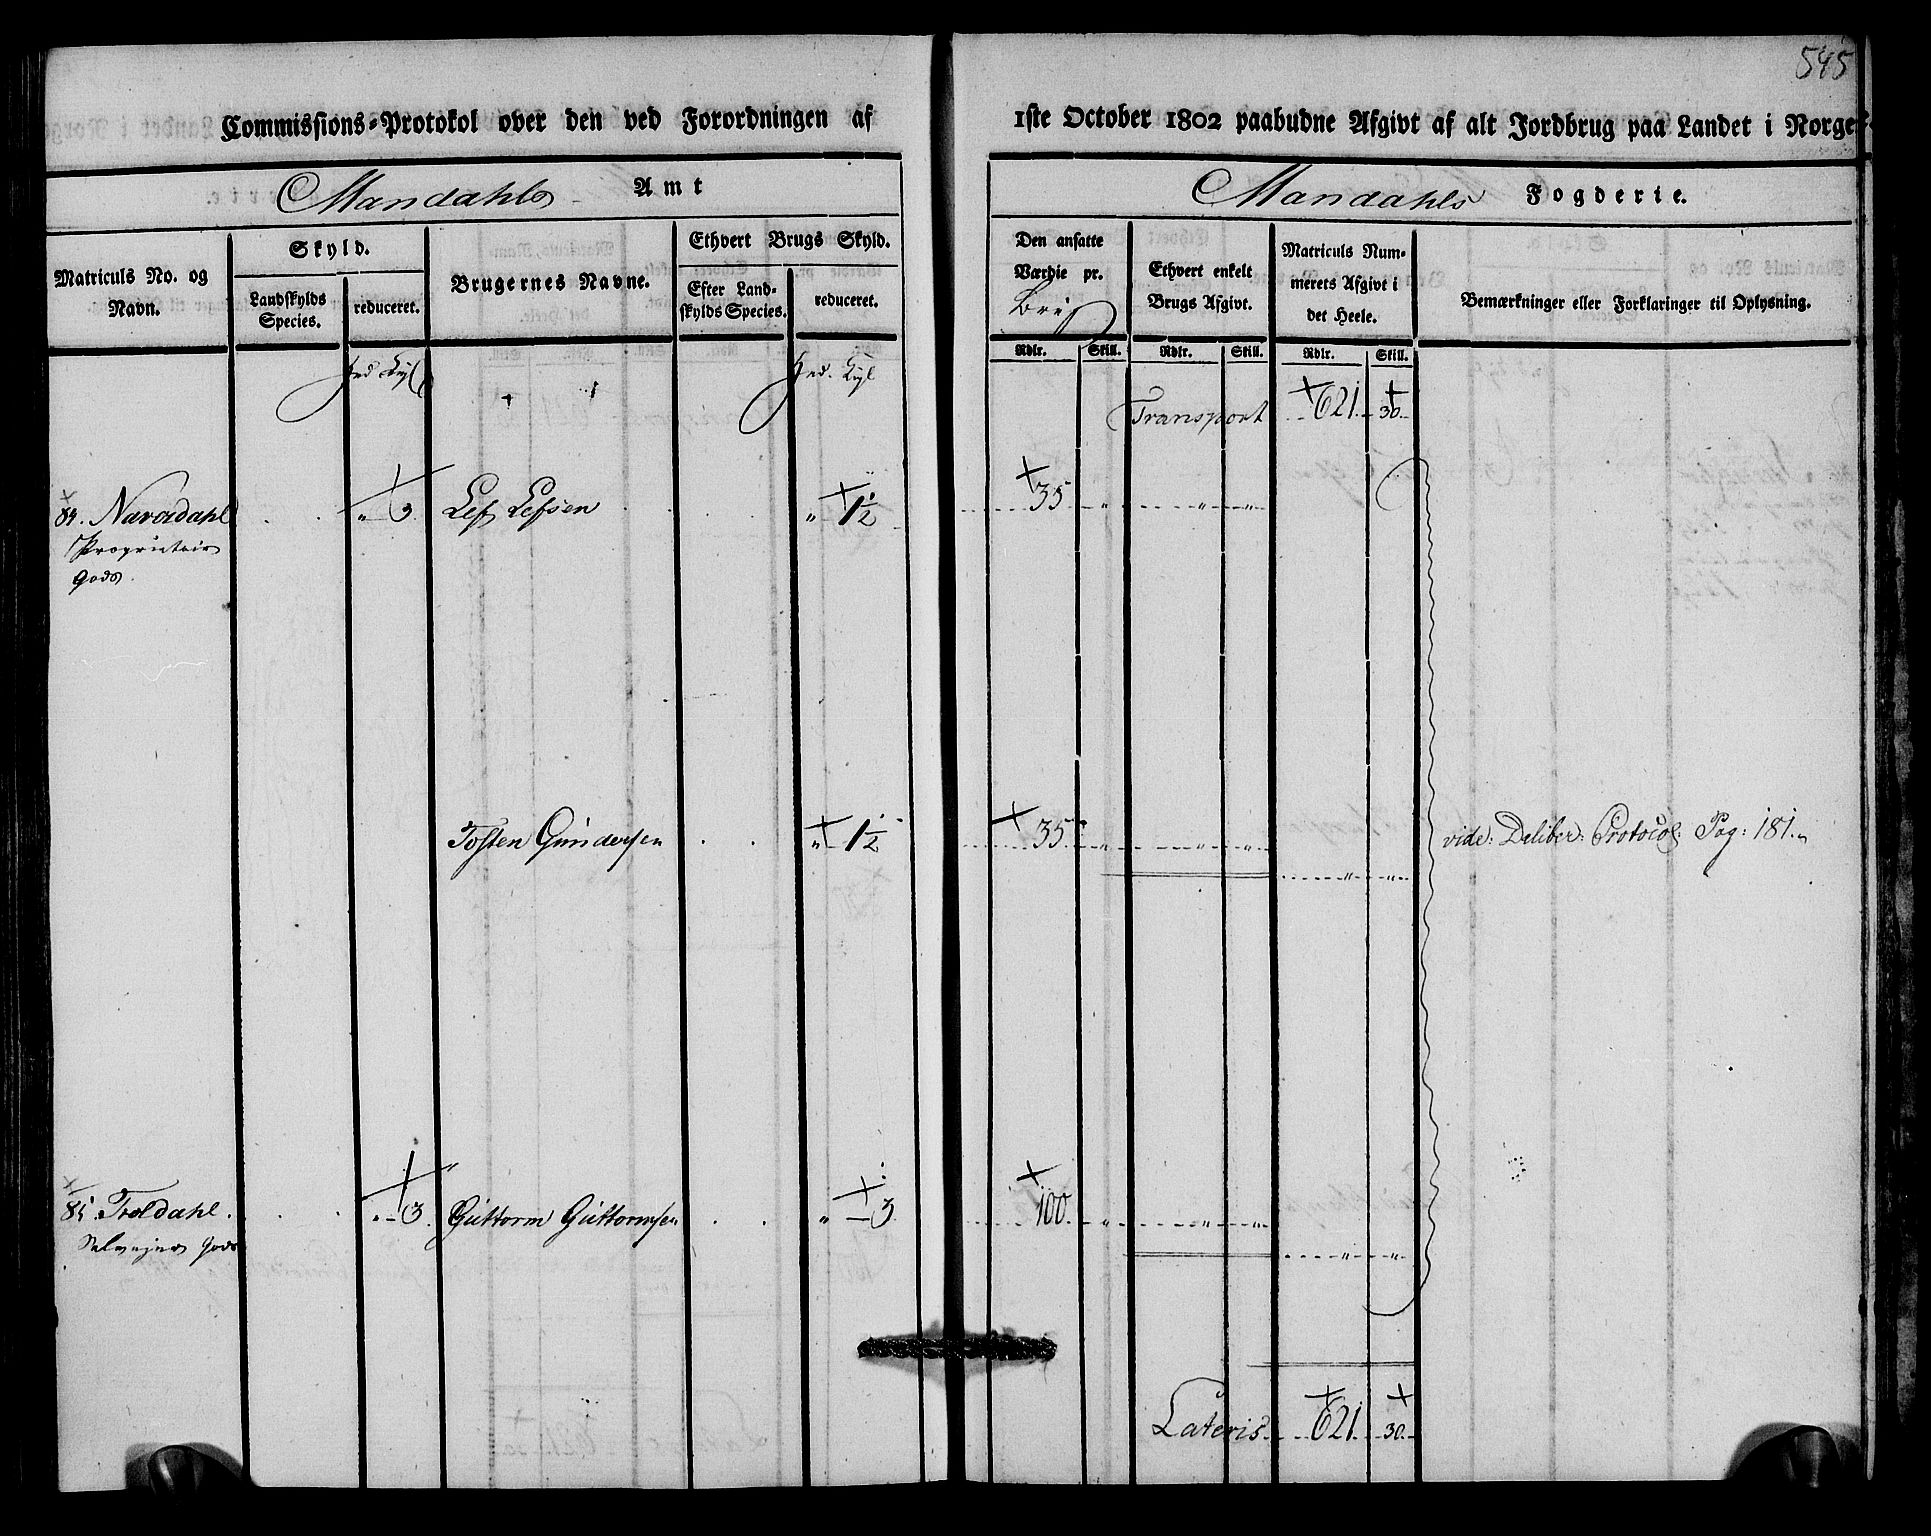 545
Commissions-Protokol over den ved Forordningen af 1ste October 1802 paabudne Afgivt af alt Jordbrug paa Landet i Norge.
Mandahls Amt
Mandahls Fogderie.
Matriculs No. og Navn.
Skyld.
Landskylds Species.
reduceret.
Brugernes Navne.
Ethvert Brugs Skyld.
Efter Landskylds Species.
reduceret.
Den ansatte Værdie pr.
Ethvert enkelt Brugs Afgivt.
Matriculs Nummerets Afgivt i det Heele.
Bemærkninger eller Forklaringer til Oplysning.
Rdlr. Skill. Rdlr. Skill. Rdlr. Skill.
Transport 621. 30.
84. Naverdahl " 3 Lef Lefsen " 1½ 35 " " "
Proprietair
Gods.
Tosten Gundersen " 1½ 35 " " " vide: Deliber: Protocol. Pag: 181.
" "
85. Troldahl. " 3. Guttorm Guttormsen " 3. 100 " " "
Selvejer Gods
" "
Lateris 621. 30.